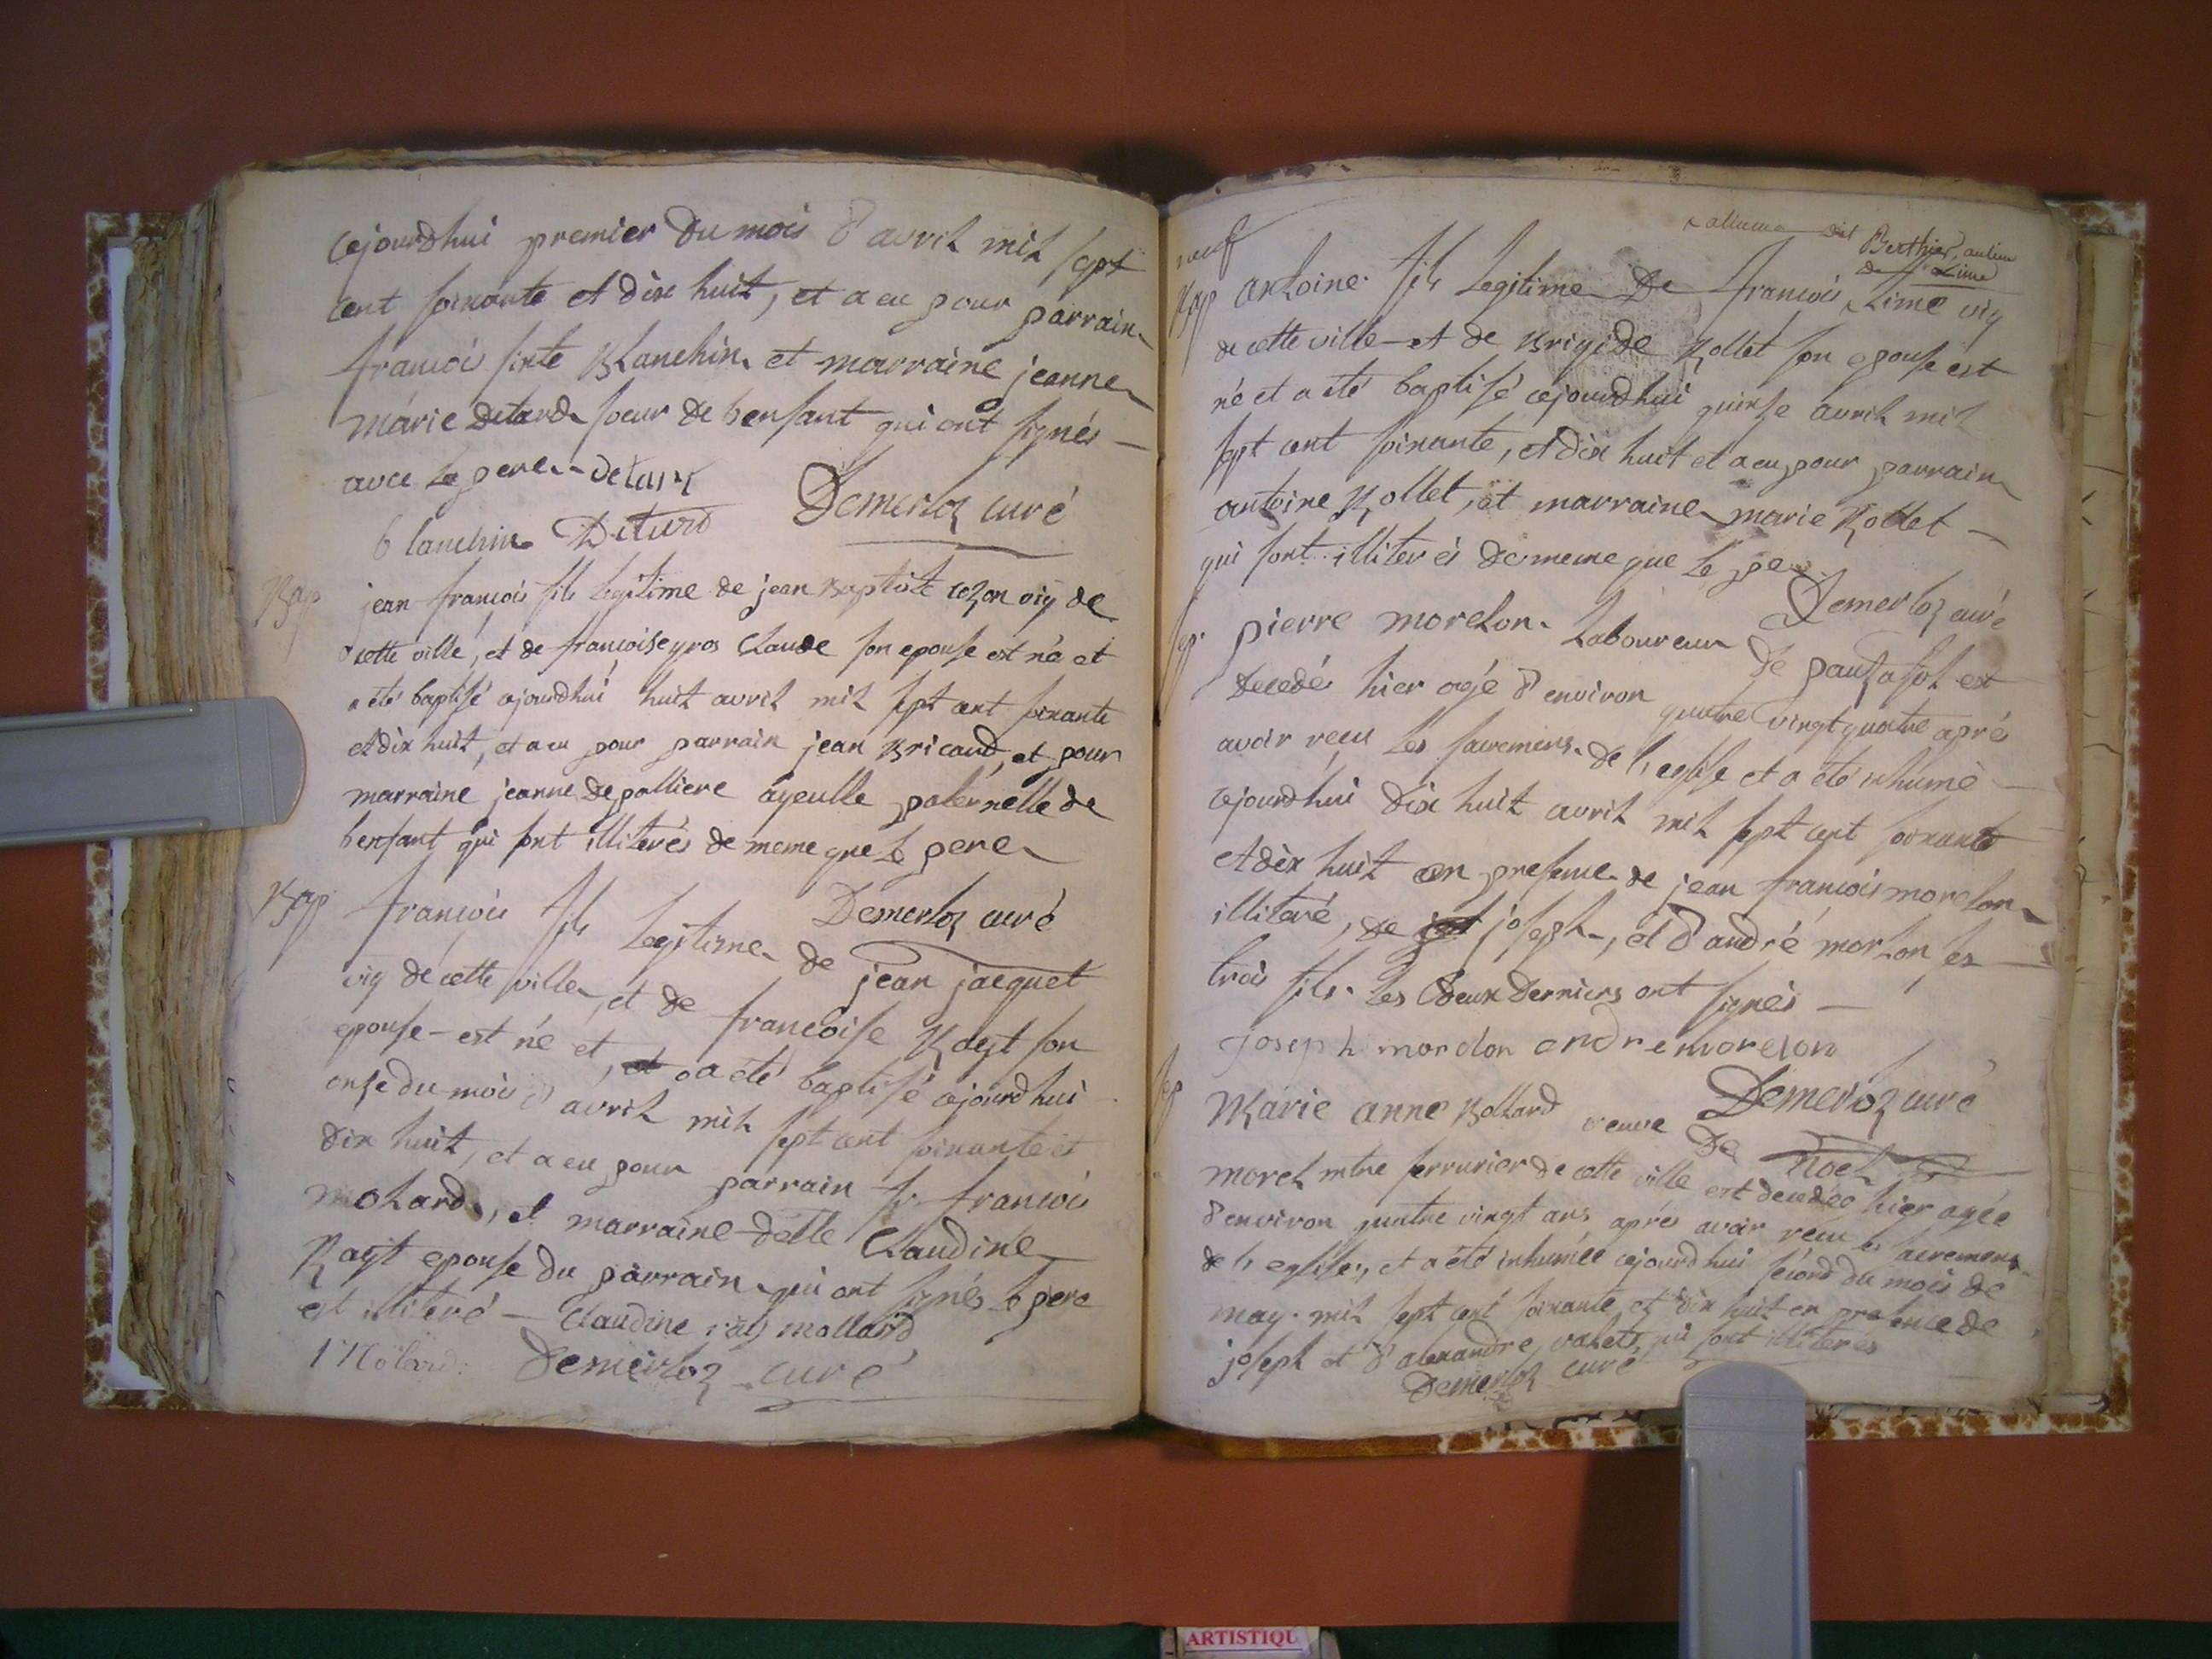 cejourdhui premier du mois d'avril mil sept
cent soixante et dix huit, et a eu pour parrain
francois Blanchin et marraine jeanne
marie detard soeur de l'enfant qui ont signés
avec le pere detard
blanchin Detard Demerloz curé
Bap
jean françois fils legitime de jean Baptiste cozon vig de
cette ville, et de francoise gros Claude son epouse est né et
a été baptisé cejourdhui huit avril mil sept cent soixante
et dix huit, et a eu pour parrain jean Bricaud, et pour
marraine jeanne depalliere ayeulle paternelle de
l'enfant qui sont illiterés de meme que le pere
Demerloz curé
Bap
francois fils legitime de jean jacquet
vig de cette ville, et de francoise Rayt son
epouse est né et a été baptisé cejourdhui
onze du mois d'avril mil sept cent soixante et
dix huit, et a eu pour parrain sr francois
molard, et marraine delle Claudine
Rayt epouse du parrain qui ont signés le pere
est illiteré Claudine mollard
Molard Demerloz curé
neuf
dit Berthier, au lieu
de Lime
Bap
antoine fils legitime de francois Lime vig
de cette ville et de Brigide Rollet son epouse est
né et a été baptisé cejourdhui quinse avril mil
sept cent soixante, et dix huit et a eu pour parrain
antoine Rollet, et marraine marie Rollet
qui sont illiterés de meme que le pere
Demerloz curé
sep
pierre morelon Laboureur de est
decedés hier agé d'environ quatre vingt quatre aprés
avoir reçu les sacremens de l'eglise et a été inhumé
cejourdhui dix huit avril mil sept cent soixante
et dix huit en presence de jean francois morelon
illiteré, de joseph, et d'andré morlon ses
trois fils. les deux derniers ont signés
joseph morelon andre morelon
Demerloz curé
sep
Marie anne Bollard veuve de Noel
morel mtre serrurier de cette ville est decedée hier agée
d'environ quatre vingt ans aprés avoir recu les sacremens
de l'eglise, et a été inhumée cejourdhui second du mois de
may mil sept cent soixante et dix huit en presence de
joseph et d'alexandre valets, qui sont illiterés
Demerloz curé
ARTISTIQU